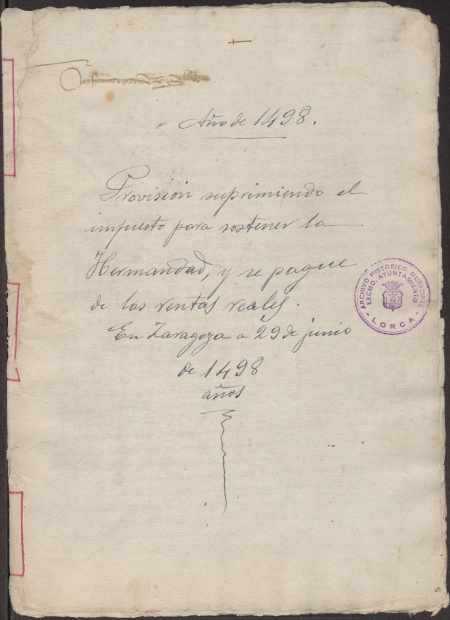 Año de 1498.
Provisión suprimiendo el
impuesto para sostener la
Hermandad, y se pague
de las rentas reales.
En Zaragoza a 29 de junio
de 1498
años
ARCHIVO HISTORICO MUNICIPAL
EXCMO. AYUNTAMIENTO
- LORCA -